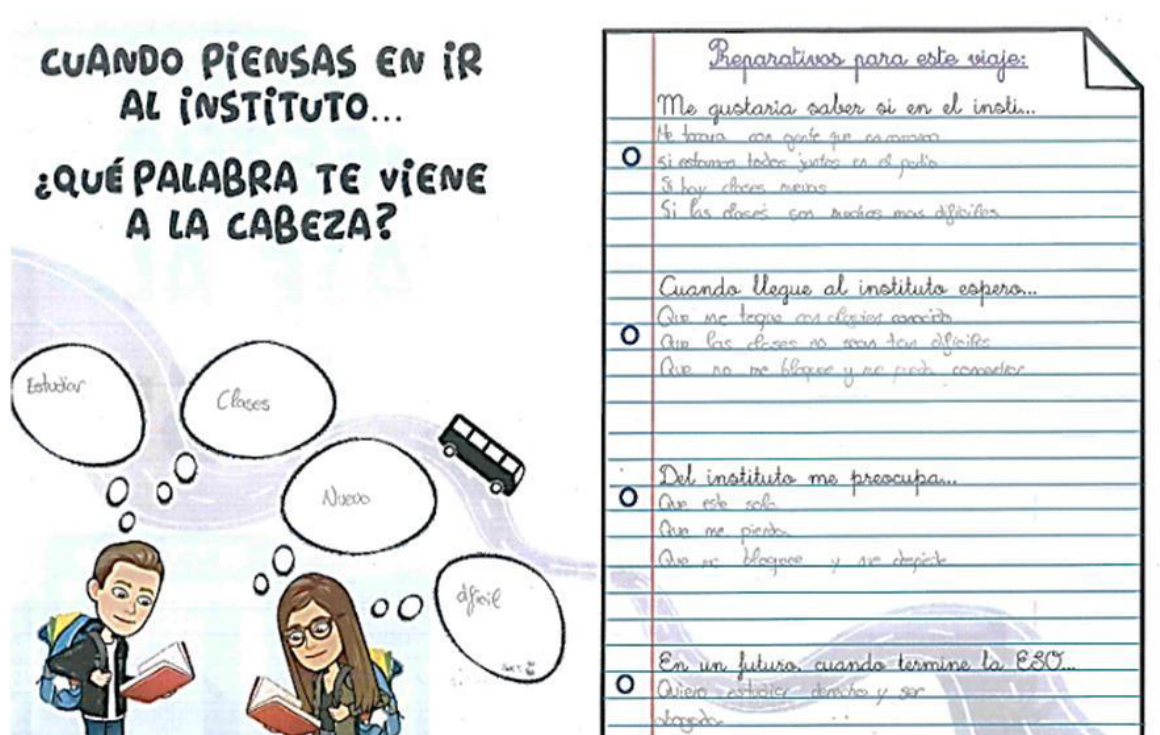 CUANDO PIENSAS EN IR
AL INSTITUTO...
¿QUÉ PALABRA TE VIENE
A LA CABEZA?
Estudiar
Clases
Nuevo
dificil
Preparativos para este viaje:
Me gustaría saber si en el insti...
Me tocara con gente que
Si estamos todos juntos en el patio
Si hay clases nuevas
Si las clases son muchas mas dificiles
Cuando llegue al instituto espero...
Que me toque con alguien conocido
Que las clases no sean tan dificiles
Que no me bloquee y me pueda
Del instituto me preocupa...
Que este sola
Que me pierda
Que me bloquee y me despiste
En un futuro, cuando termine la ESO...
Quiero estudiar derecho y ser
abogada